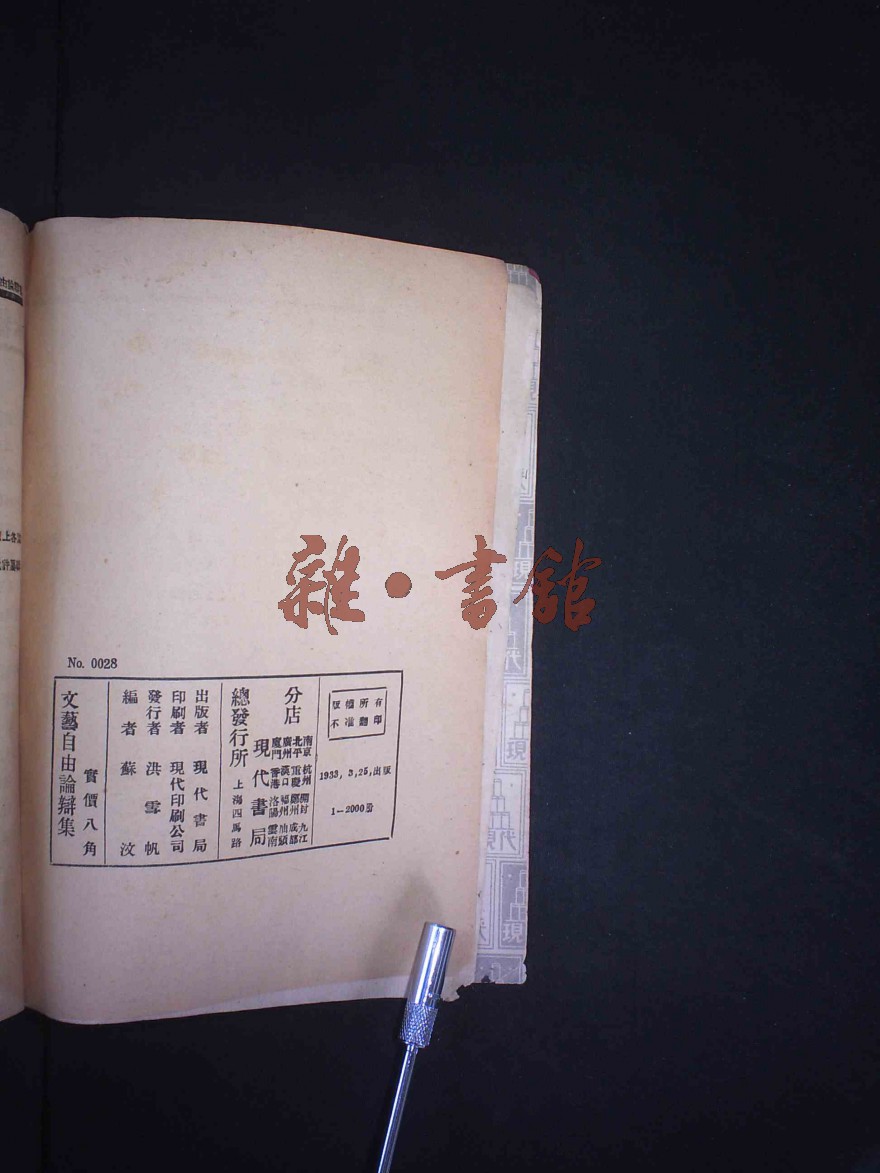 雜·書館
No. 0028
版權所有
不准翻印
1933, 3, 25, 出版
1—2000册
分店
南京 杭州 開封 九江
北平 重慶 鄭州 成都
廣州 漢口 福州 汕頭
廈門 香港 洛陽 雲南
總發行所 現代書局 上海四馬路
出版者 現代書局
印刷者 現代印刷公司
發行者 洪雪帆
編者 蘇汶
實價八角
文藝自由論辯集